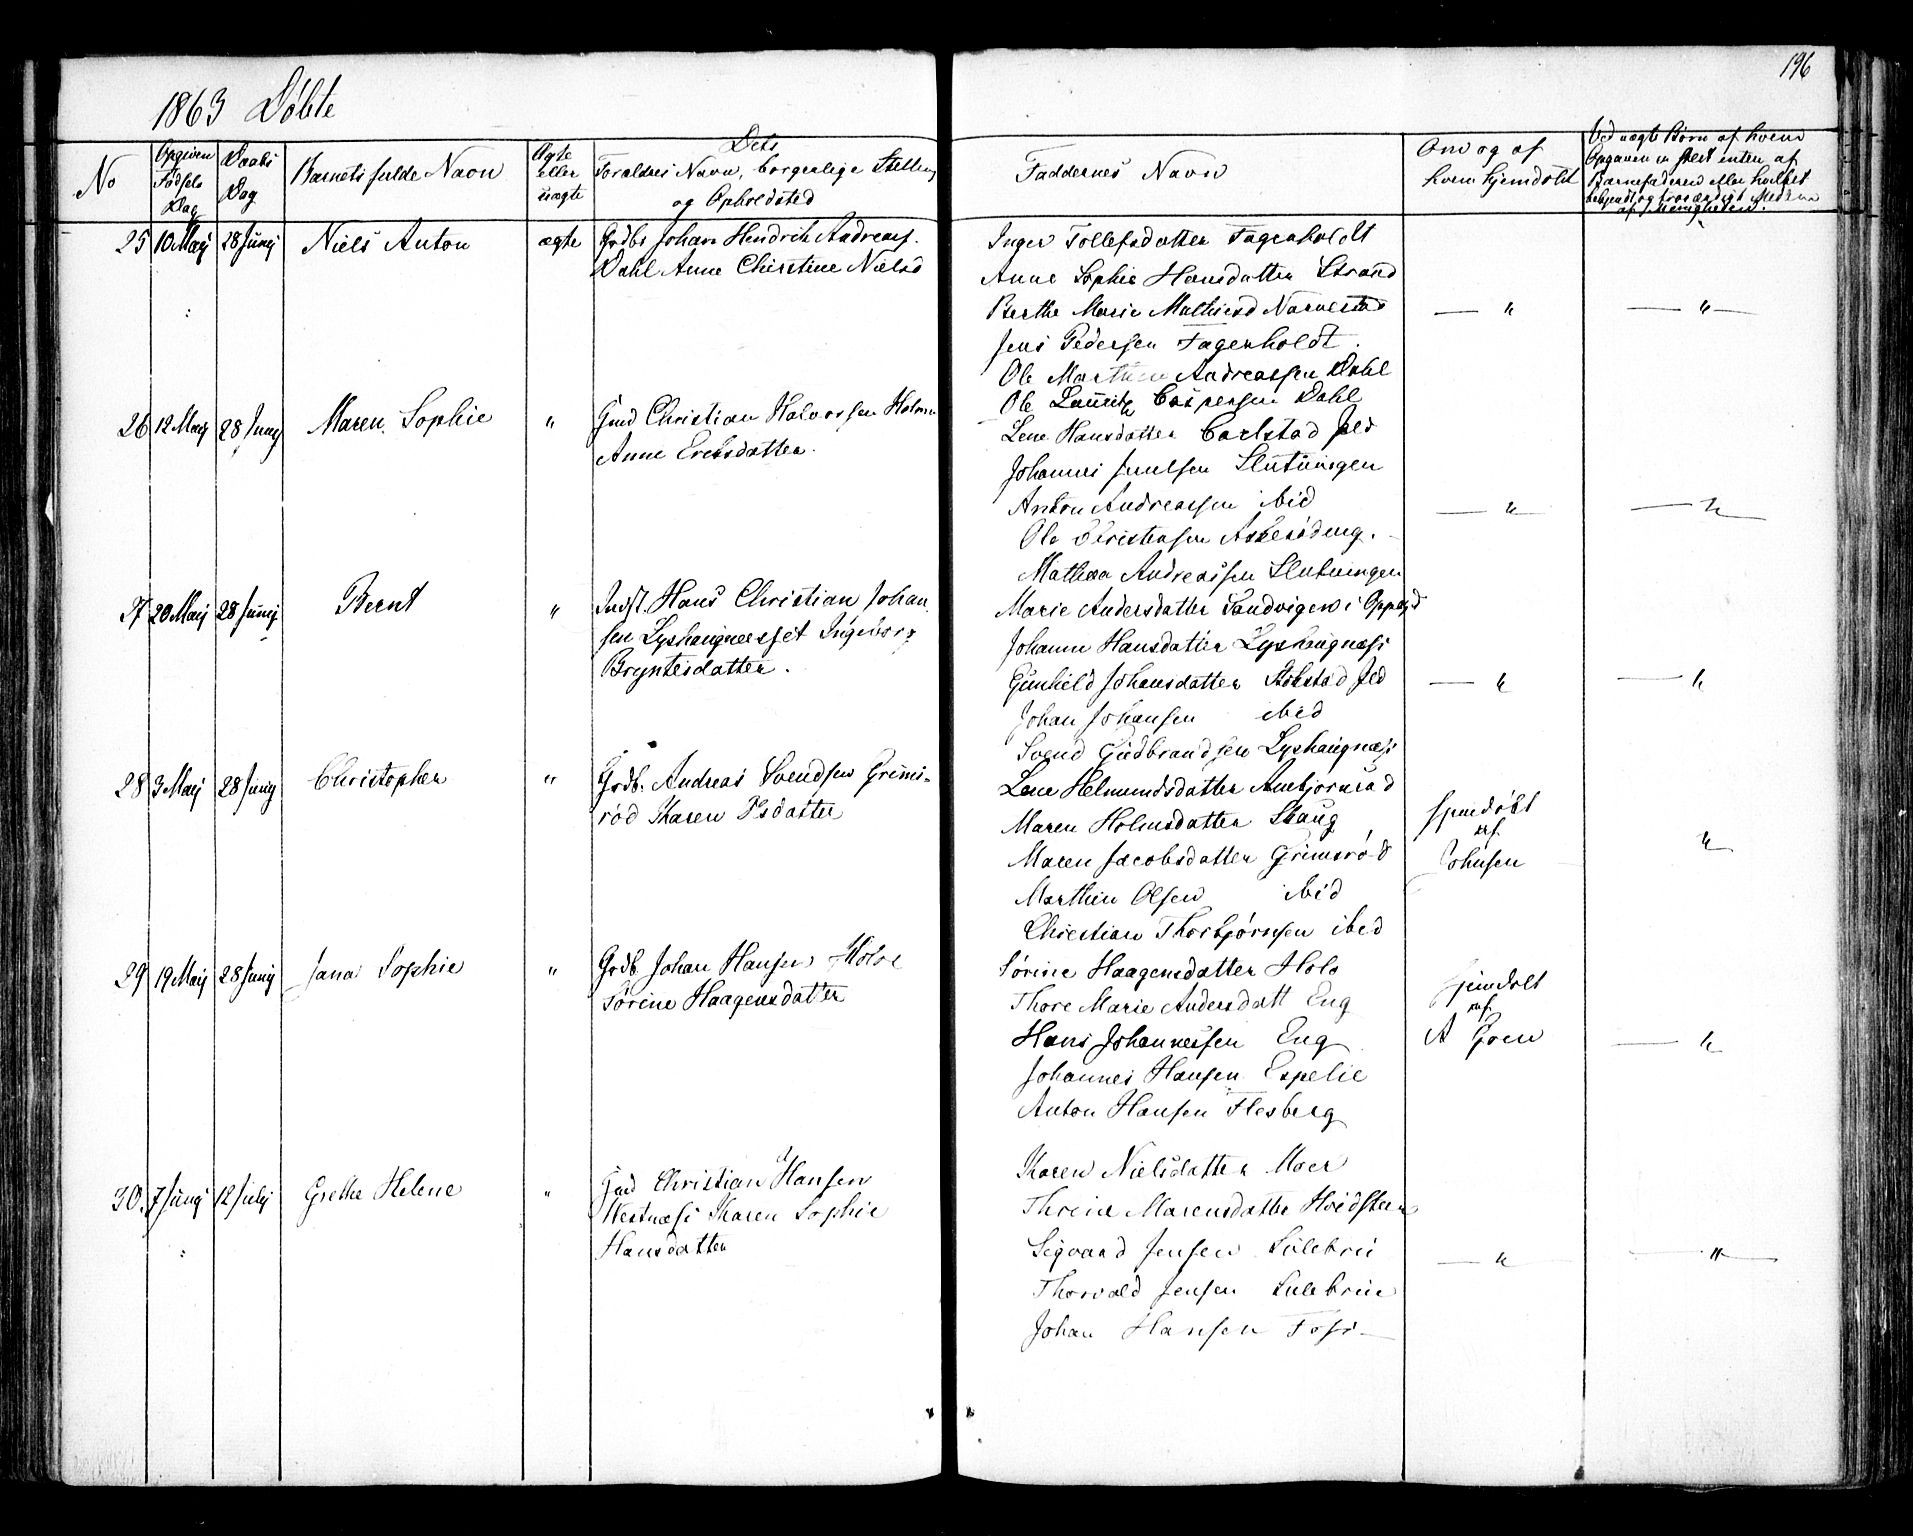 196
1863 Döbte
No
Opgiven Födsels Dag
Daabs Dag
Barnets fulde Navn
Ægte eller uægte
Dets Foraldres Navn, borgerlige Stelling og Opholdsted
Faddernes Navn
Om og af hvem hjemdöbt
Ved uægte Börn af hvem
Opgaven er skeet enten af
Barnefaderen eller
af Menigheden.
25 10 Maij 28 Junij Niels Anton ægte Grdbr Johan Hendrik Andreas.
Dahl Anne Christine Nielsd
Inger Tollefsdatter Fagerholdt
Anne Sophie Hansdatter Strand
Berthe Marie Mathiesd Narvestad — " — "
Jens Pedersen Fagerholdt.
Ole Andreassen Dahl
26 12 Maij 28 Junij Maren Sophie " Gmd Christian Halvorsen Holm
Anne Ericsdatter.
Ole Lauritz Caspersen Dahl
Lene Hansdatter Carlstad
Johannes Juulsen Slutningen
Anton Andreassen ibid — " — "
Ole Christensen
Mathea Andreassen Slutningen
27 20 Maij 28 Junij Bernt " Indst. Hans Christian Johan
sen Lyshaugneesset Ingeborg
Bryntesdatter.
Marie Andersdatter Sandvigen i
Johanne Hansdatter Lyshaugnæss
Gunhild Johansdatter — " — "
Johan Johansen ibid
Svend Gudbrandsen Lyshaugnæss
28 3 Maij 28 Junij Christopher " Grdb. Andreas Svendsen Grims-
röd Karen Psdatter
Lene Helmundsdatter
Maren Holmsdatter Skaug
Maren Jacobsdatter Grimsröd
Marthin Olsen ibid
Christian Thorbjörnsen ibid
Hjemdöbt
af
Johnsen
"
29 19 Maij 28 Junij Jana Sophie " Grdb Johan Hansen Holoe
Sörine Haagensdatter
Sörine Haagensdatter Holo
Thore Marie Andersdatt Eng
Hans Johannessen Eng
Johannes Hansen Espelie
Anton Hansen Flesberg
Hjemdöbt
af
A
— "
30. 7 Junij 12 Julij Grethe Helene " Gmd Christian Hansen
Westnæss Karen Sophie
Hansdatter
Karen Nielsdatter Moer
Thrine Marensdatter Hvidsteen
Sigvard Jensen Sulebrie
Thorvald Jensen Sulebrie — " — "
Johan Hansen